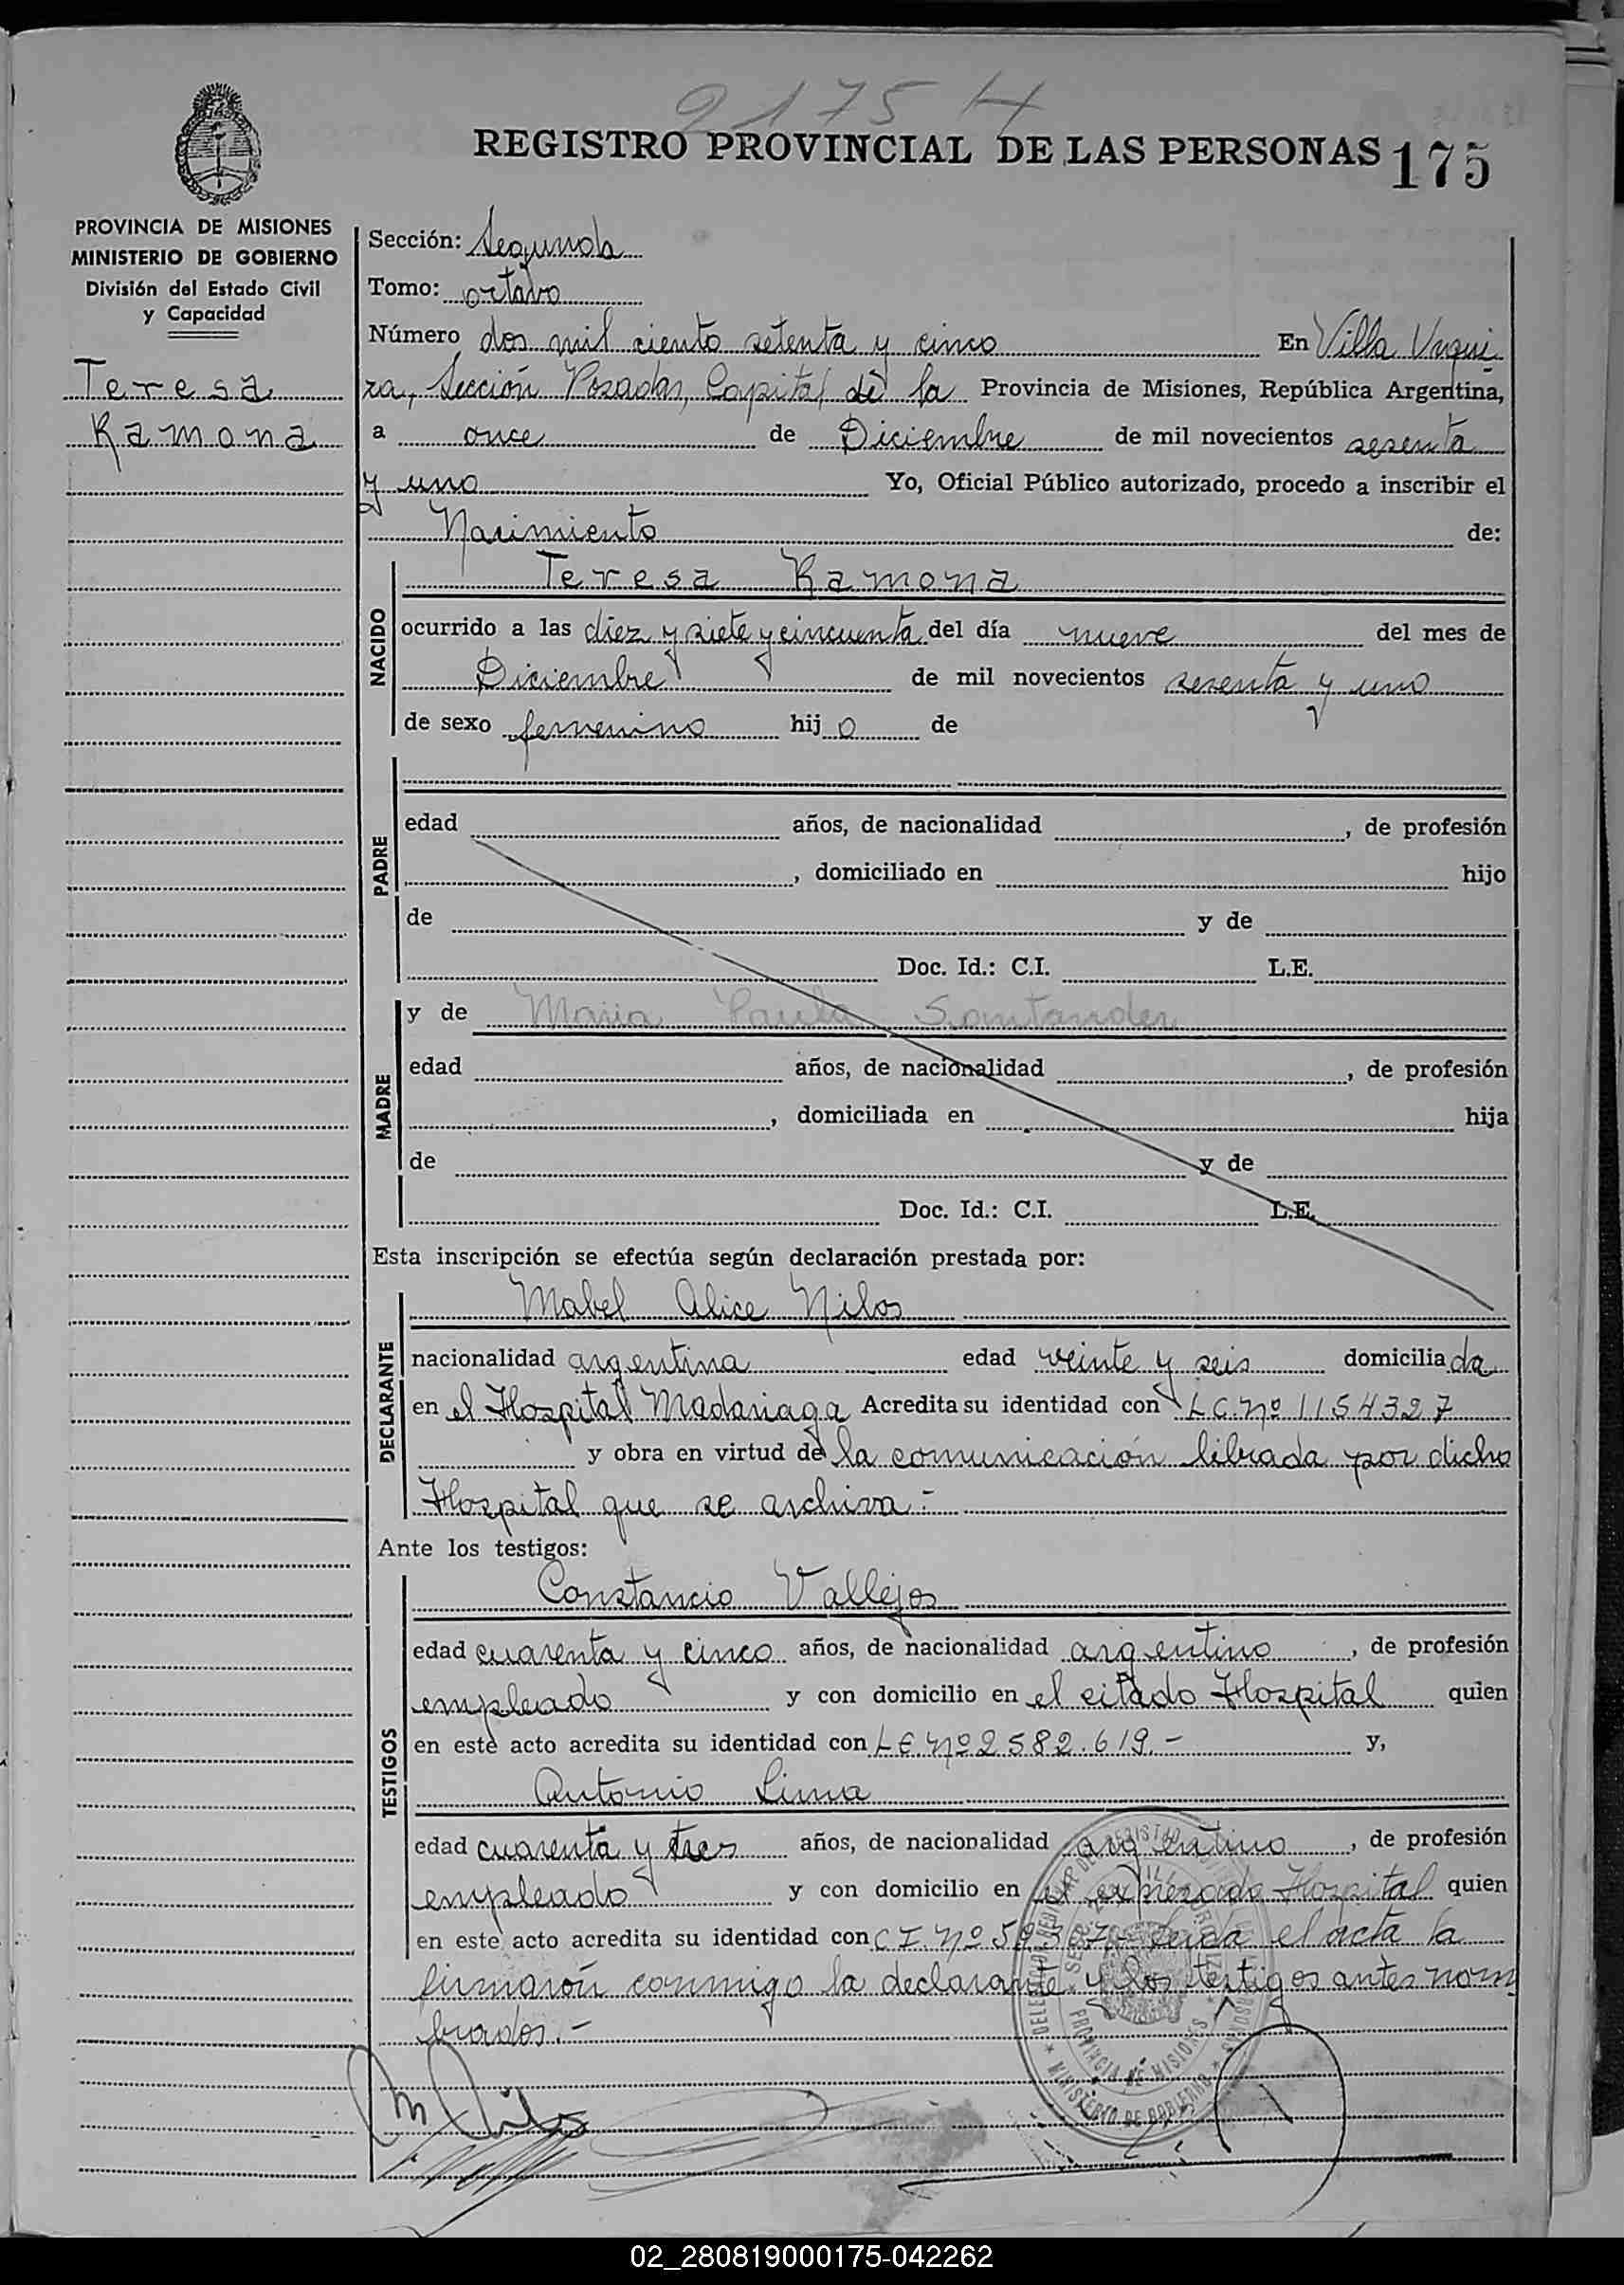 2175 H
REGISTRO PROVINCIAL DE LAS PERSONAS 175
PROVINCIA DE MISIONES
MINISTERIO DE GOBIERNO
División del Estado Civil
y Capacidad
Teresa
Ramona
Sección: Segunda
Tomo: octavo
Número dos mil ciento setenta y cinco En Villa Urqui
za, Sección Posadas, Capital de la Provincia de Misiones, República Argentina,
a once de Diciembre de mil novecientos sesenta
y uno Yo, Oficial Público autorizado, procedo a inscribir el
Nacimiento de:
NACIDO
Teresa Ramona
ocurrido a las diez y siete y cincuenta del día nueve del mes de
Diciembre de mil novecientos sesenta y uno
de sexo femenino hijo de
PADRE
edad años, de nacionalidad , de profesión
, domiciliado en hijo
de y de
Doc. Id.: C.I. L.E.
MADRE
y de Maria Paula Santander
edad años, de nacionalidad , de profesión
, domiciliada en hija
de y de
Doc. Id.: C.I. L.E.
Esta inscripción se efectúa según declaración prestada por:
DECLARANTE
Mabel Alice Nilos
nacionalidad argentina edad veinte y seis domiciliada
en el Hospital Madariaga Acredita su identidad con L C. Nº 1154327
y obra en virtud de la comunicación librada por dicho
Hospital que se archiva.-
Ante los testigos:
TESTIGOS
Constancio Vallejos
edad cuarenta y cinco años, de nacionalidad argentino , de profesión
empleado y con domicilio en el citado Hospital quien
en este acto acredita su identidad con L E. Nº 2582.619.- y,
Antonio Lima
edad cuarenta y tres años, de nacionalidad argentino , de profesión
empleado y con domicilio en el expresado Hospital quien
en este acto acredita su identidad con C I. Nº Leida el acta la
firmarón conmigo la declarante y los testigos antes nom
brados.-
PROVINCIA DE MISIONES
MINISTERIO DE GOBIERNO
02_280819000175-042262